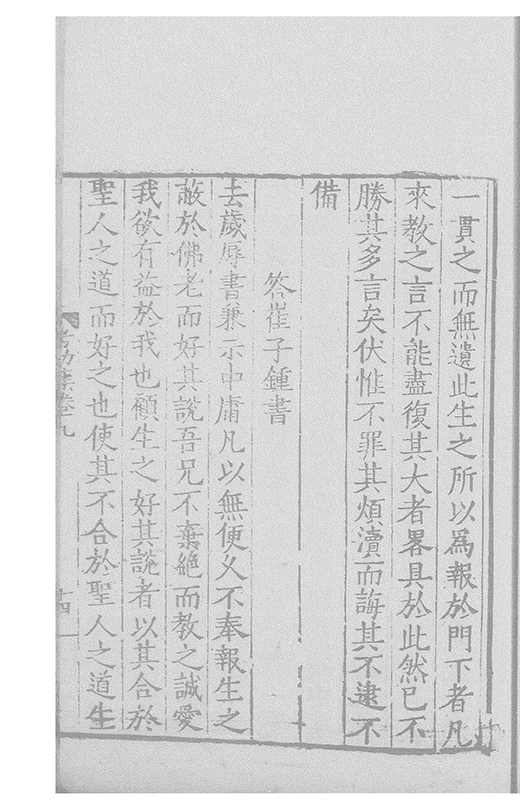 一貫之而無遺此生之所以爲報於門下者凡
來教之言不能盡復其大者畧具於此然已不
勝其多言矣伏惟不罪其煩瀆而誨其不逮不
備
答崔子鍾書
去歲辱書兼示中庸凡以無便久不奉報生之
蔽於佛老而好其說吾兄不棄絶而教之誠愛
我欲有益於我也顧生之好其說者以其合於
聖人之道而好之也使其不合於聖人之道生
考功集卷九
十四